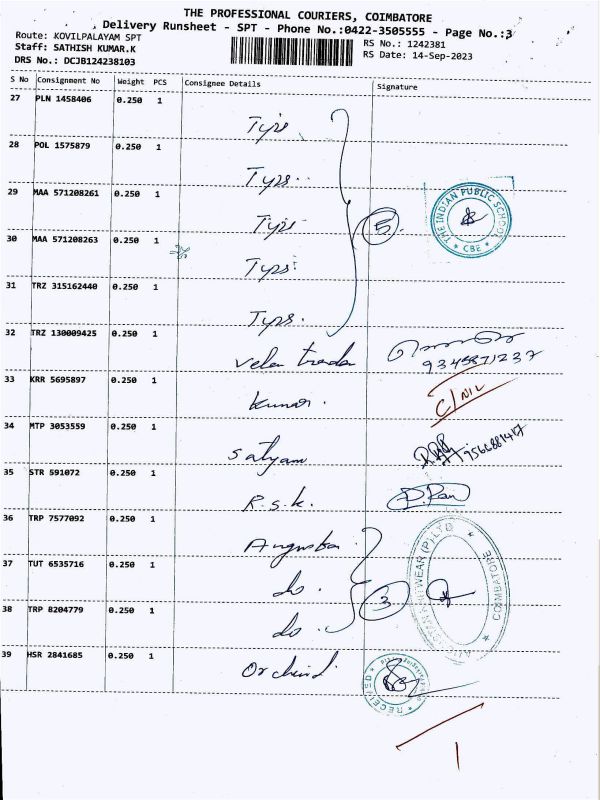 THE PROFESSIONAL COURIERS, COIMBATORE
Delivery Runsheet - SPT - Phone No.:0422-3505555 - Page No.:3
Route: KOVILPALAYAM SPT
RS No.: 1242381
Staff: SATHISH KUMAR.K
RS Date: 14-Sep-2023
DRS No.: DCJB124238103
S No Consignment No Weight PCS Consignee Details Signature
27 PLN 1458406 0.250 1
Tips
28 POL 1575879 0.250 1
Tips
29 MAA 571208261 0.250 1
THE INDIAN PUBLIC SCHOOL
CBE
Tips
5
30 MAA 571208263 0.250 1
Tips
31 TRZ 315162440 0.250 1
Tips.
32 TRZ 130009425 0.250 1
Velan
33 KRR 5695897 0.250 1
Kumar.
C/NIL
34 MTP 3053559 0.250 1
Satyam
35 STR 591072 0.250 1
R.s.k.
36 TRP 7577092 0.250 1
(P) LTD
COIMBATORE
37 TUT 6535716 0.250 1
do
3
38 TRP 8204779 0.250 1
do
39 HSR 2841685 0.250 1
RECEIVED